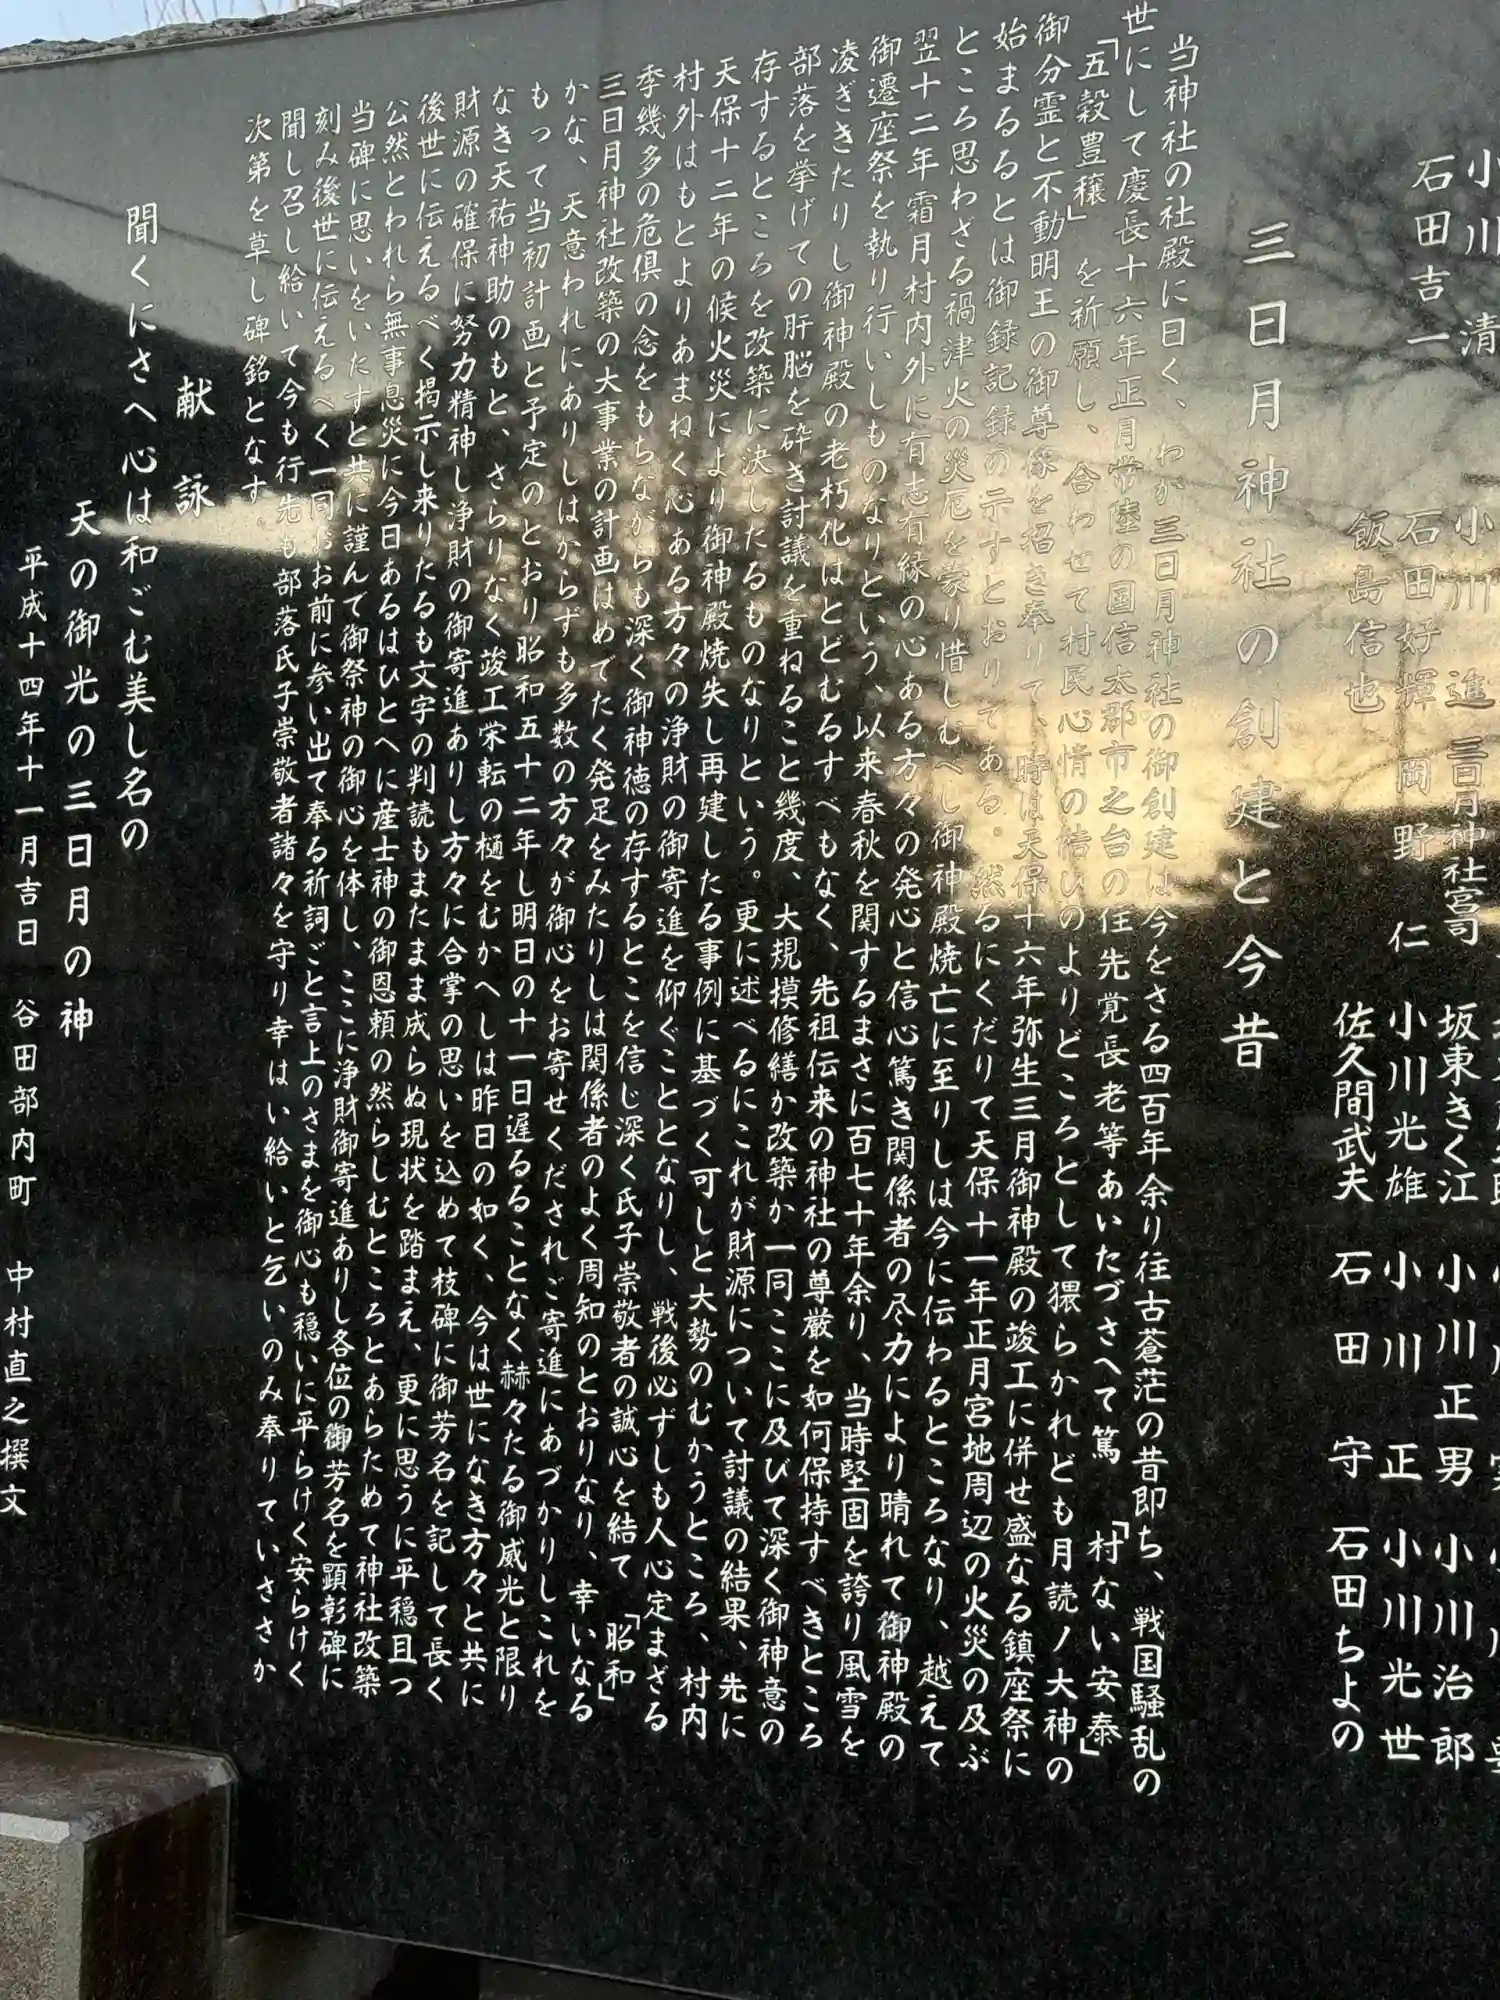 小川 清
石田吉一
小川 進
三日月神社宮司
石田好輝
飯島信也
岡野 仁
坂東きく江
小川光雄
佐久間武夫
小川正男
小川 正
石田 守
小川治郎
小川光世
石田ちよの
三日月神社の創建と今昔
当神社の社殿に曰く、わが三日月神社の御創建は今をさる四百年余り往古蒼茫の昔即ち、戦国騒乱の
世にして慶長十六年正月常陸の国信太郡市之台の住先覚長老等あいたづさへて篤「村ない安泰」
「五穀豊穣」を祈願し、合わせて村民心情の結びのよりどころとして猥らかれども月読ノ大神の
御分霊と不動明王の御尊像を招き奉りて、時は天保十六年弥生三月御神殿の竣工に併せ盛なる鎮座祭に
始まるるとは御録記録の示すとおりである。然るにくだりて天保十一年正月宮地周辺の火災の及ぶ
ところ思わざる禍津火の災厄を蒙り惜しむべし御神殿焼亡に至りしは今に伝わるところなり、越えて
翌十二年霜月村内外に有志有縁の心ある方々の発心と信心篤き関係者の尽力により晴れて御神殿の
御遷座祭を執り行いしものなりという、以来春秋を関するまさに百七十年余り、当時堅固を誇り風雪を
凌ぎきたりし御神殿の老朽化はとどむるすべもなく、先祖伝来の神社の尊厳を如何保持すべきところ
部落を挙げての肝脳を砕き討議を重ねること幾度、大規模修繕か改築か一同ここに及びて深く御神意の
存するところを改築に決したるものなりという。更に述べるにこれが財源について討議の結果、先に
天保十二年の候火災により御神殿焼失し再建したる事例に基づく可しと大勢のむかうところ、村内
村外はもとよりあまねく心ある方々の浄財の御寄進を仰ぐこととなりし、戦後必ずしも人心定まざる
季幾多の危倶の念をもちながらも深く御神徳の存するとこを信じ深く氏子崇敬者の誠心を結て「昭和」
三日月神社改築の大事業の計画はめでたく発足をみたりしは関係者のよく周知のとおりなり、幸いなる
かな、天意われにありしはからずも多数の方々が御心をお寄せくだされご寄進にあづかりしこれを
もって当初計画と予定のとおり昭和五十二年し明日の十一日遅るることなく赫々たる御威光と限り
なき天祐神助のもと、さらりなく竣工栄転の樋をむかへしは昨日の如く、今は世になき方々と共に
財源の確保に努力精神し浄財の御寄進ありし方々に合掌の思いを込めて枝碑に御芳名を記して長く
後世に伝えるべく掲示し来りたるも文字の判読もまたまま成らぬ現状を踏まえ、更に思うに平穏且つ
公然とわれら無事息災に今日あるはひとへに産土神の御恩頼の然らしむところとあらためて神社改築
当碑に思いをいたすと共に謹んで御祭神の御心を体し、ここに浄財御寄進ありし各位の御芳名を顕彰碑に
刻み後世に伝えるべく一同お前に参い出て奉る祈詞ごと言上のさまを御心も穏いに平らけく安らけく
聞し召し給いて今も行先も部落氏子崇敬者諸々を守り幸はい給いと乞いのみ奉りていささか
次第を草し碑銘となす。
献詠
聞くにさへ心は和ごむ美し名の
天の御光の三日月の神
平成十四年十一月吉日 谷田部内町 中村直之撰文